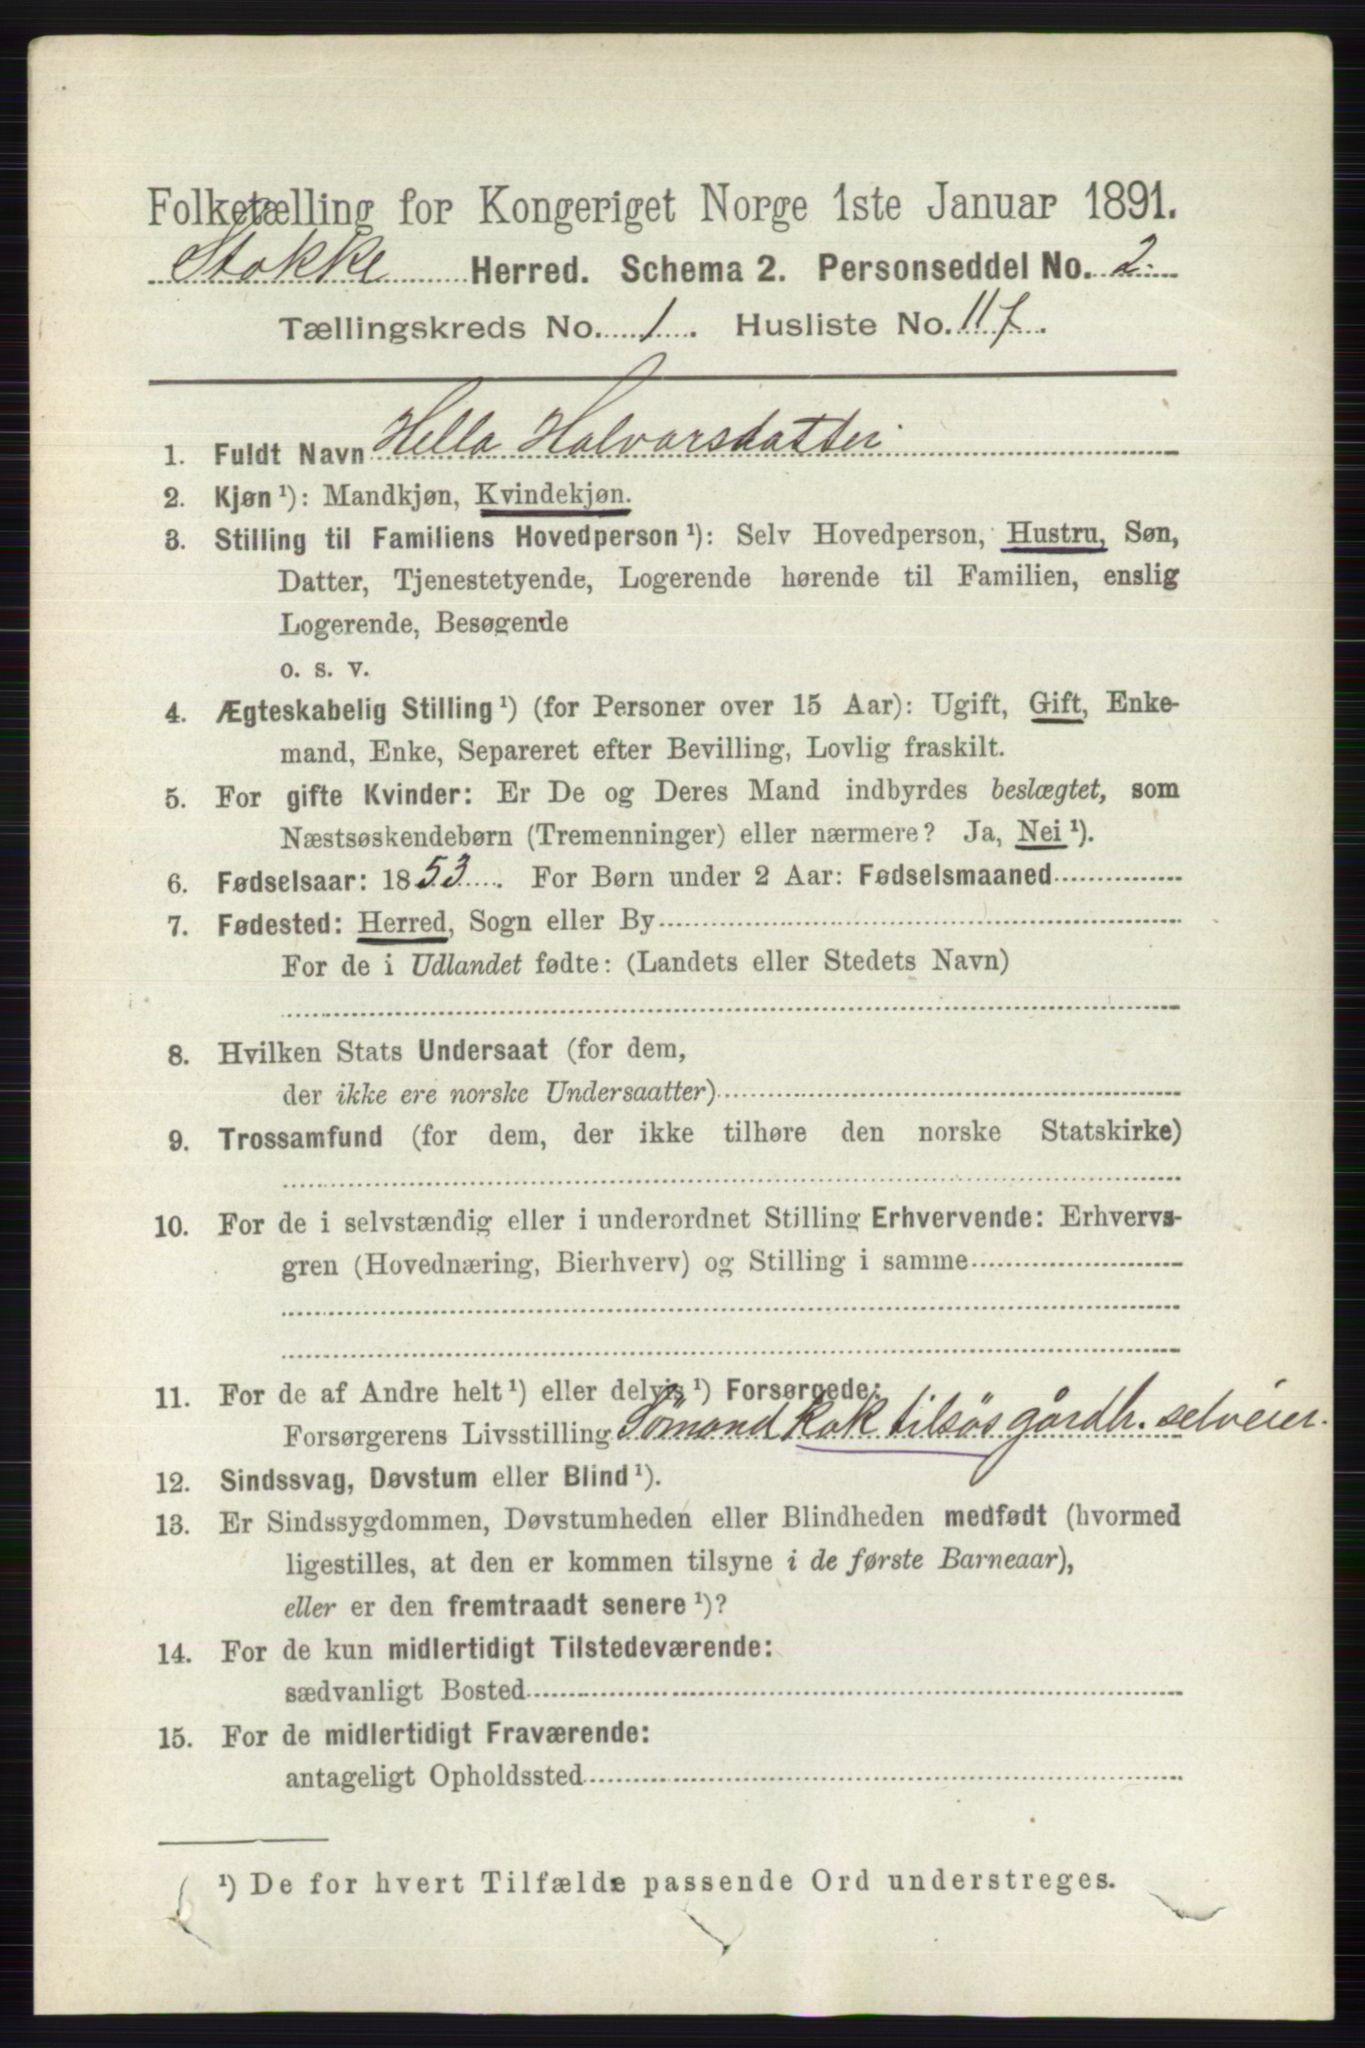 Folketælling for Kongeriget Norge 1ste Januar 1891.
Stokke Herred. Schema 2. Personseddel No. 2.
Tællingskreds No. 1. Husliste No. 117.
1. Fuldt Navn Hella Halvarsdatter.
2. Kjøn ¹): Mandkjøn, Kvindekjøn.
3. Stilling til Familiens Hovedperson ¹): Selv Hovedperson, Hustru, Søn,
Datter, Tjenestetyende, Logerende hørende til Familien, enslig
Logerende, Besøgende
o. s. v.
4. Ægteskabelig Stilling ¹) (for Personer over 15 Aar): Ugift, Gift, Enke-
mand, Enke, Separeret efter Bevilling, Lovlig fraskilt.
5. For gifte Kvinder: Er De og Deres Mand indbyrdes beslægtet, som
Næstsøskendebørn (Tremenninger) eller nærmere? Ja, Nei ¹).
6. Fødselsaar: 1853. For Børn under 2 Aar: Fødselsmaaned
7. Fødested: Herred, Sogn eller By
For de i Udlandet fødte: (Landets eller Stedets Navn)
8. Hvilken Stats Undersaat (for dem,
der ikke ere norske Undersaatter)
9. Trossamfund (for dem, der ikke tilhøre den norske Statskirke)
10. For de i selvstændig eller i underordnet Stilling Erhvervende: Erhvervs-
gren (Hovednæring, Bierhverv) og Stilling i samme
11. For de af Andre helt ¹) eller delvis ¹) Forsørgede:
Forsørgerens Livsstilling Sömand kok tilsös gårdbr. selveier.
12. Sindssvag, Døvstum eller Blind ¹).
13. Er Sindssygdommen, Døvstumheden eller Blindheden medfødt (hvormed
ligestilles, at den er kommen tilsyne i de første Barneaar),
eller er den fremtraadt senere ¹)?
14. For de kun midlertidigt Tilstedeværende:
sædvanligt Bosted
15. For de midlertidigt Fraværende:
antageligt Opholdssted
¹) De for hvert Tilfælde passende Ord understreges.